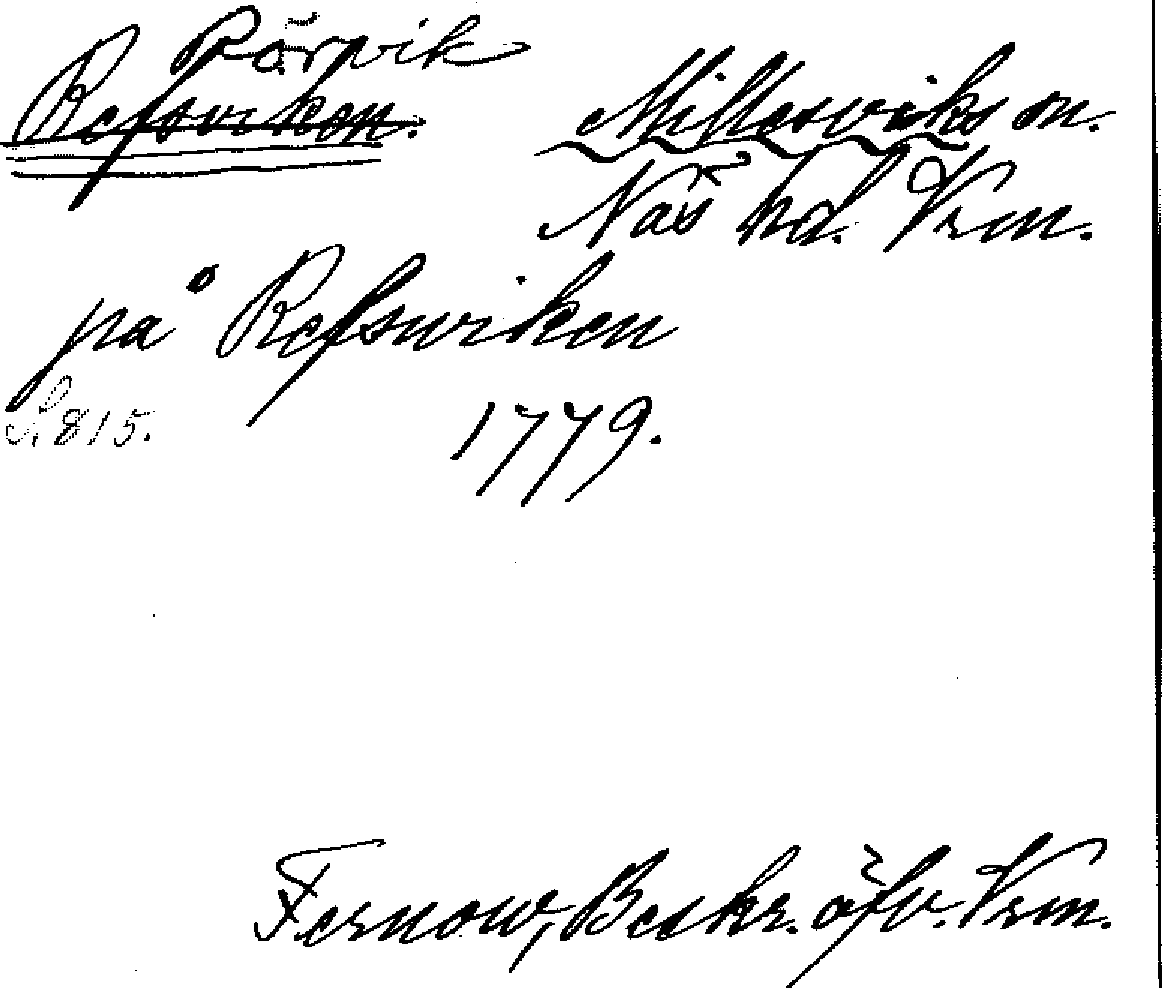 Rärvik
Refsviken. Millesviks sn.
Näs hd. Vrm.
på Refswiken
S. 815. 1779.
Fernow, Beskr. öfv. Vrm.